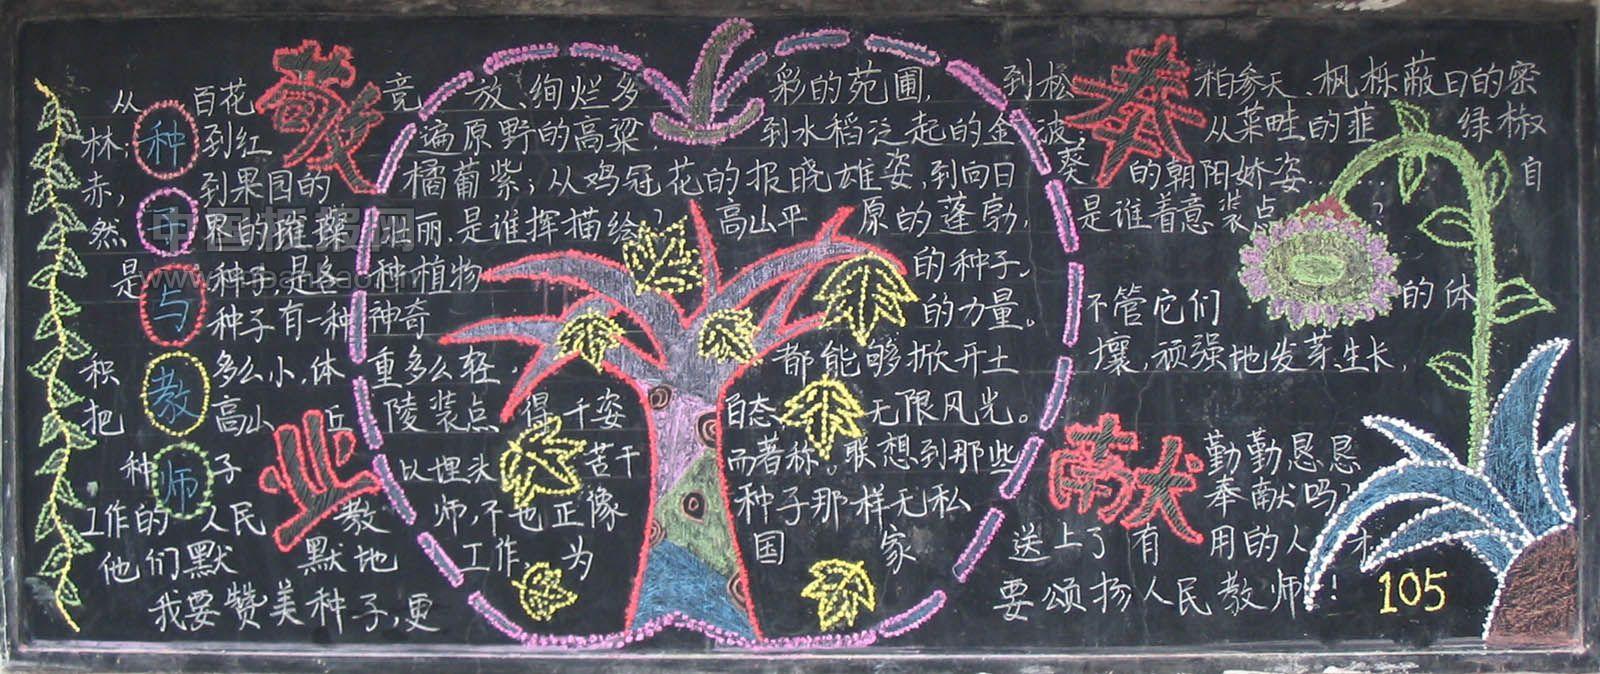 敬 奉 业 献
种子与教师
从百花竞放、绚烂多彩的苑圃，到松柏参天、枫栎蔽日的密
林；到红遍原野的高粱，到水稻泛起的金波从菜畦的韭绿椒
赤，到果园的橘葡紫；从鸡冠花的报晓雄姿，到向日葵的朝阳娇姿……自
然界的璀璨壮丽，是谁挥描绘？高山平原的蓬勃，是谁着意装点？
是种子，是多种植物的种子。
种子有一种神奇的力量。不管它们的体
积多么小，体重多么轻，都能够掀开土壤，顽强地发芽、生长，
把高山丘陵装点得千姿百态无限风光。
种子以埋头苦干而著称。联想到那些勤勤恳恳
工作的人民教师，不也正像种子那样无私奉献吗？
他们默默地工作，为国家送上了有用的人才。
我要赞美种子，更要颂扬人民教师！！
105
中国板报网